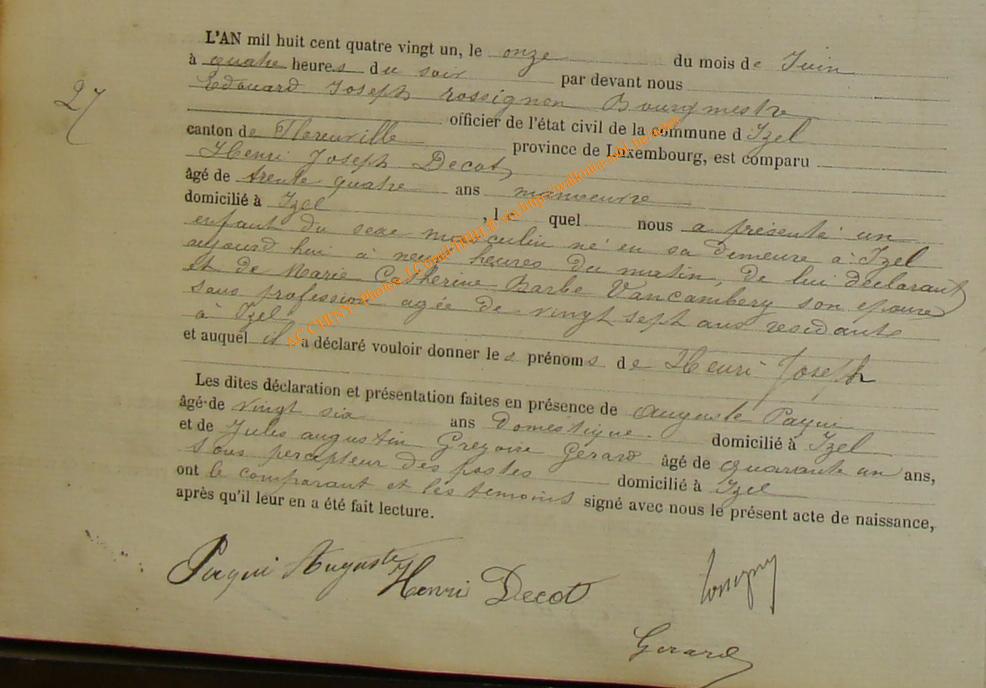 L'AN mil huit cent quatre vingt un, le onze du mois de Juin
à quatre heures du soir par devant nous
Edouard Joseph rossignon Bourgmestre
27
officier de l'état civil de la commune d Izel
canton de Florenville province de Luxembourg, est comparu
Henri Joseph Decot,
âgé de trente quatre ans manoeuvre
domicilié à Izel, l e quel nous a présenté un
enfant du sexe masculin né en sa demeure à Izel
aujourd hui à neuf heures du matin, de lui déclarant
et de Marie Catherine Barbe Vancambery son epouse
sans profession agée de vingt sept ans residants
à Izel
et auquel il a déclaré vouloir donner le s prénoms de Henri Joseph
Les dites déclaration et présentation faites en présence de Auguste Paqui
âgé de vingt six ans Domestique domicilié à Izel
et de Jules augustin Gregoire Gérard âgé de quarante un ans,
Sous percepteur des postes domicilié à Izel
ont le comparant et les temoins signé avec nous le présent acte de naissance,
après qu'il leur en a été fait lecture.
Paqui Auguste Henri Decot
Gerard